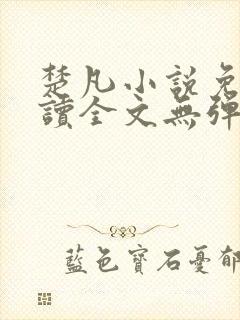 楚凡小說免
讀全文無彈
藍色寶石憂郁